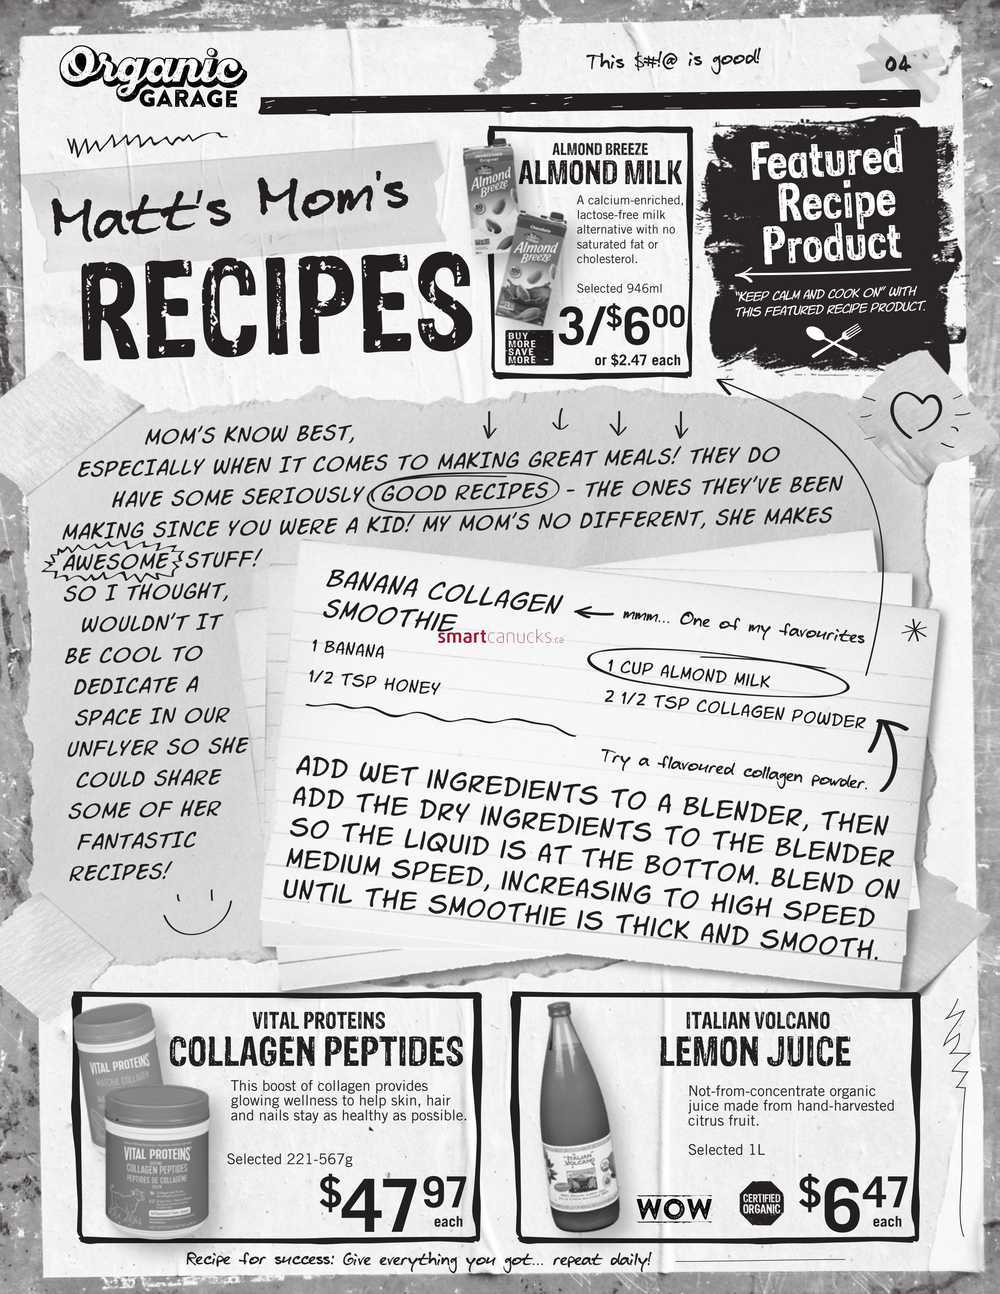 Organic
GARAGE
This $#!@ is good!
04
Matt's Mom's
RECIPES
ALMOND BREEZE
ALMOND MILK
A calcium-enriched,
lactose-free milk
alternative with no
saturated fat or
cholesterol.
Selected 946ml
BUY
MORE
SAVE
MORE
3/$6.00
or $2.47 each
Almond
Breeze
Almond
Breeze
Featured
Recipe
Product
"KEEP CALM AND COOK ON" WITH
THIS FEATURED RECIPE PRODUCT.
MOM'S KNOW BEST,
ESPECIALLY WHEN IT COMES TO MAKING GREAT MEALS! THEY DO
HAVE SOME SERIOUSLY GOOD RECIPES - THE ONES THEY'VE BEEN
MAKING SINCE YOU WERE A KID! MY MOM'S NO DIFFERENT, SHE MAKES
AWESOME STUFF!
SO I THOUGHT,
WOULDN'T IT
BE COOL TO
DEDICATE A
SPACE IN OUR
UNFLYER SO SHE
COULD SHARE
SOME OF HER
FANTASTIC
RECIPES!
BANANA COLLAGEN
SMOOTHIE
mmm... One of my favourites
smartcanucks.ca
1 BANANA
1/2 TSP HONEY
1 CUP ALMOND MILK
2 1/2 TSP COLLAGEN POWDER
Try a flavoured collagen powder.
ADD WET INGREDIENTS TO A BLENDER, THEN
ADD THE DRY INGREDIENTS TO THE BLENDER
SO THE LIQUID IS AT THE BOTTOM. BLEND ON
MEDIUM SPEED, INCREASING TO HIGH SPEED
UNTIL THE SMOOTHIE IS THICK AND SMOOTH.
VITAL PROTEINS
COLLAGEN PEPTIDES
This boost of collagen provides
glowing wellness to help skin, hair
and nails stay as healthy as possible.
Selected 221-567g
$47.97
each
VITAL PROTEINS
MATCHA COLLAGEN
VITAL PROTEINS
COLLAGEN PEPTIDES
PEPTIDES DE COLLAGÈNE
ITALIAN VOLCANO
LEMON JUICE
Not-from-concentrate organic
juice made from hand-harvested
citrus fruit.
Selected 1L
WOW
CERTIFIED
ORGANIC
$6.47
each
ITALIAN
VOLCANO
Recipe for success: Give everything you got... repeat daily!